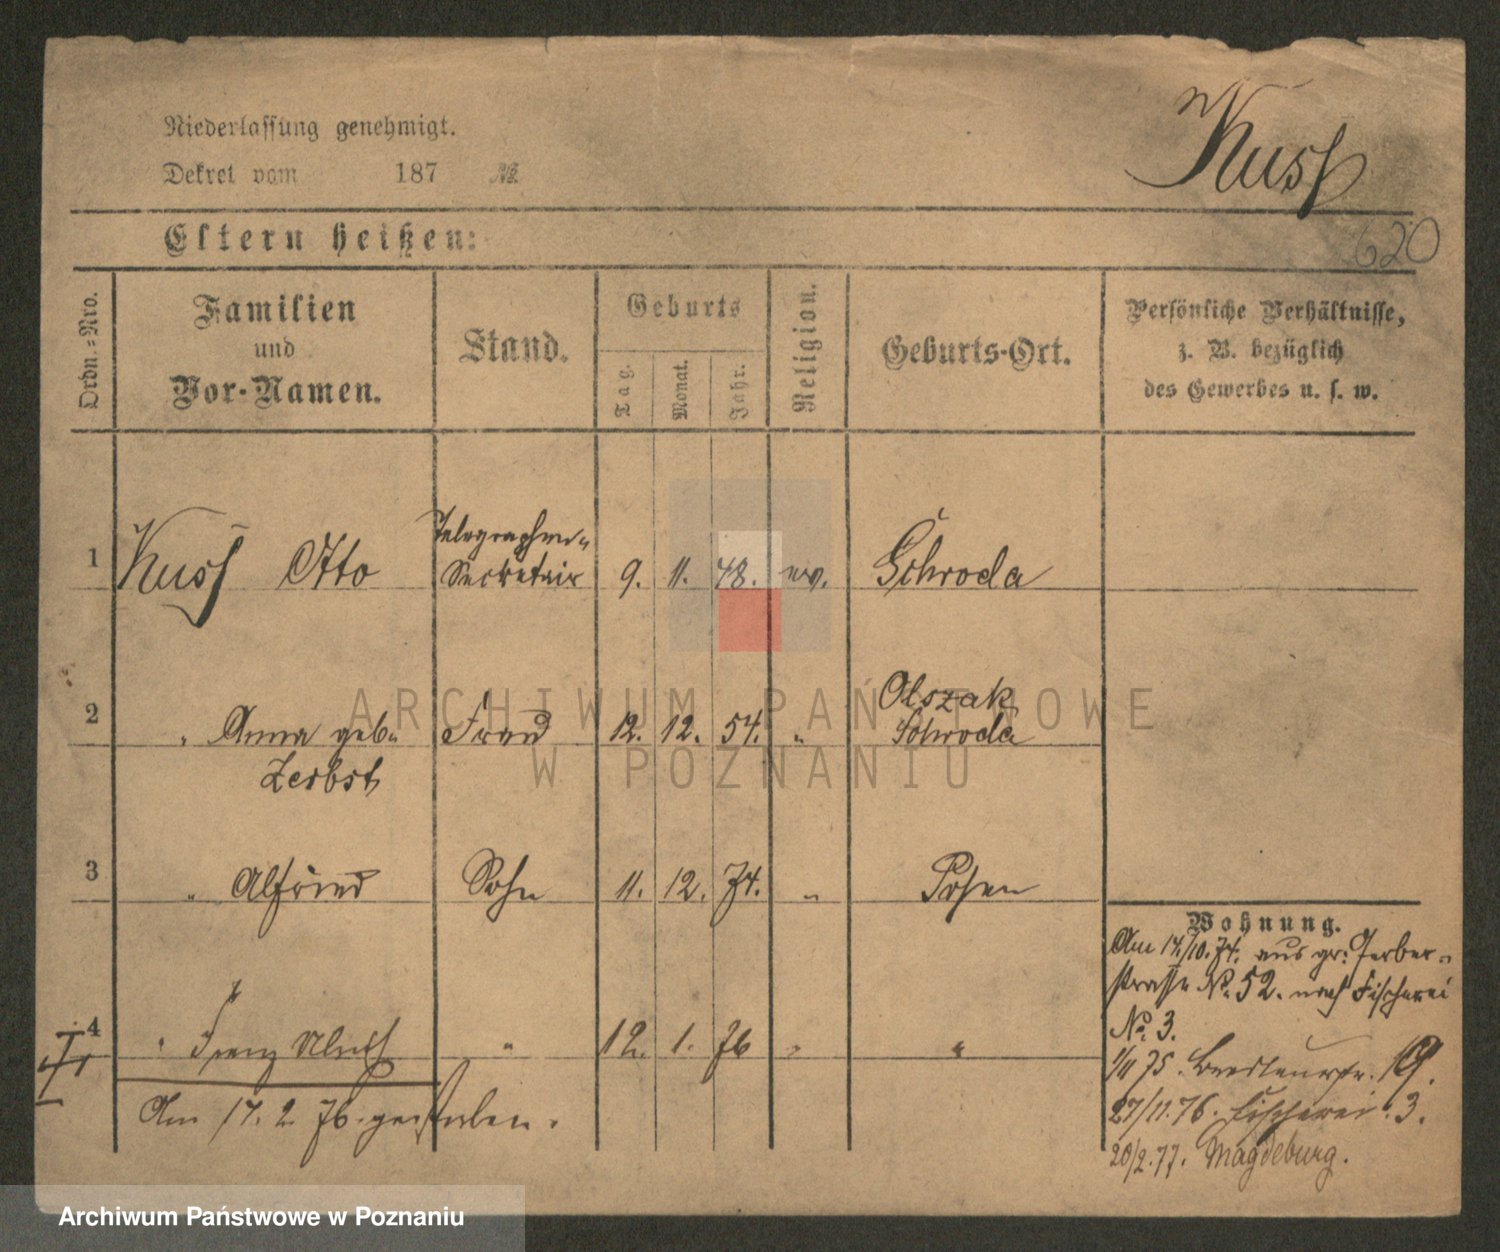 Niederlassung genehmigt.
Dekret vom 187 №
Kuss
Eltern heißen:
620
Ordn.=Nro.
Familien
und
Vor-Namen.
Stand.
Geburts
Tag.
Monat.
Jahr.
Religion.
Geburts-Ort.
Persönliche Verhältnisse,
z. B. bezüglich
des Gewerbes u. s. w.
1 Kuss Otto Telegraphen-
Secretair 9. 11. 48. ev. Schroda
2 " Anna geb. Frau 12. 12. 54. " Olszak
Schroda
Zerbst
3 " Alfried Sohn 11. 12. 74. " Posen
Wohnung.
Am 14./10. 74. aus gr: Gerber-
strasse No. 52. nach Fischerei
No. 3.
4 " Franz " 12. 1. 76 " "
1/4 75. 19.
27/11. 76. Fischerei 3.
Am 17. 2. 76. gestorben.
20/2. 77. Magdeburg.
ARCHIWUM PAŃSTWOWE
W POZNANIU
Archiwum Państwowe w Poznaniu